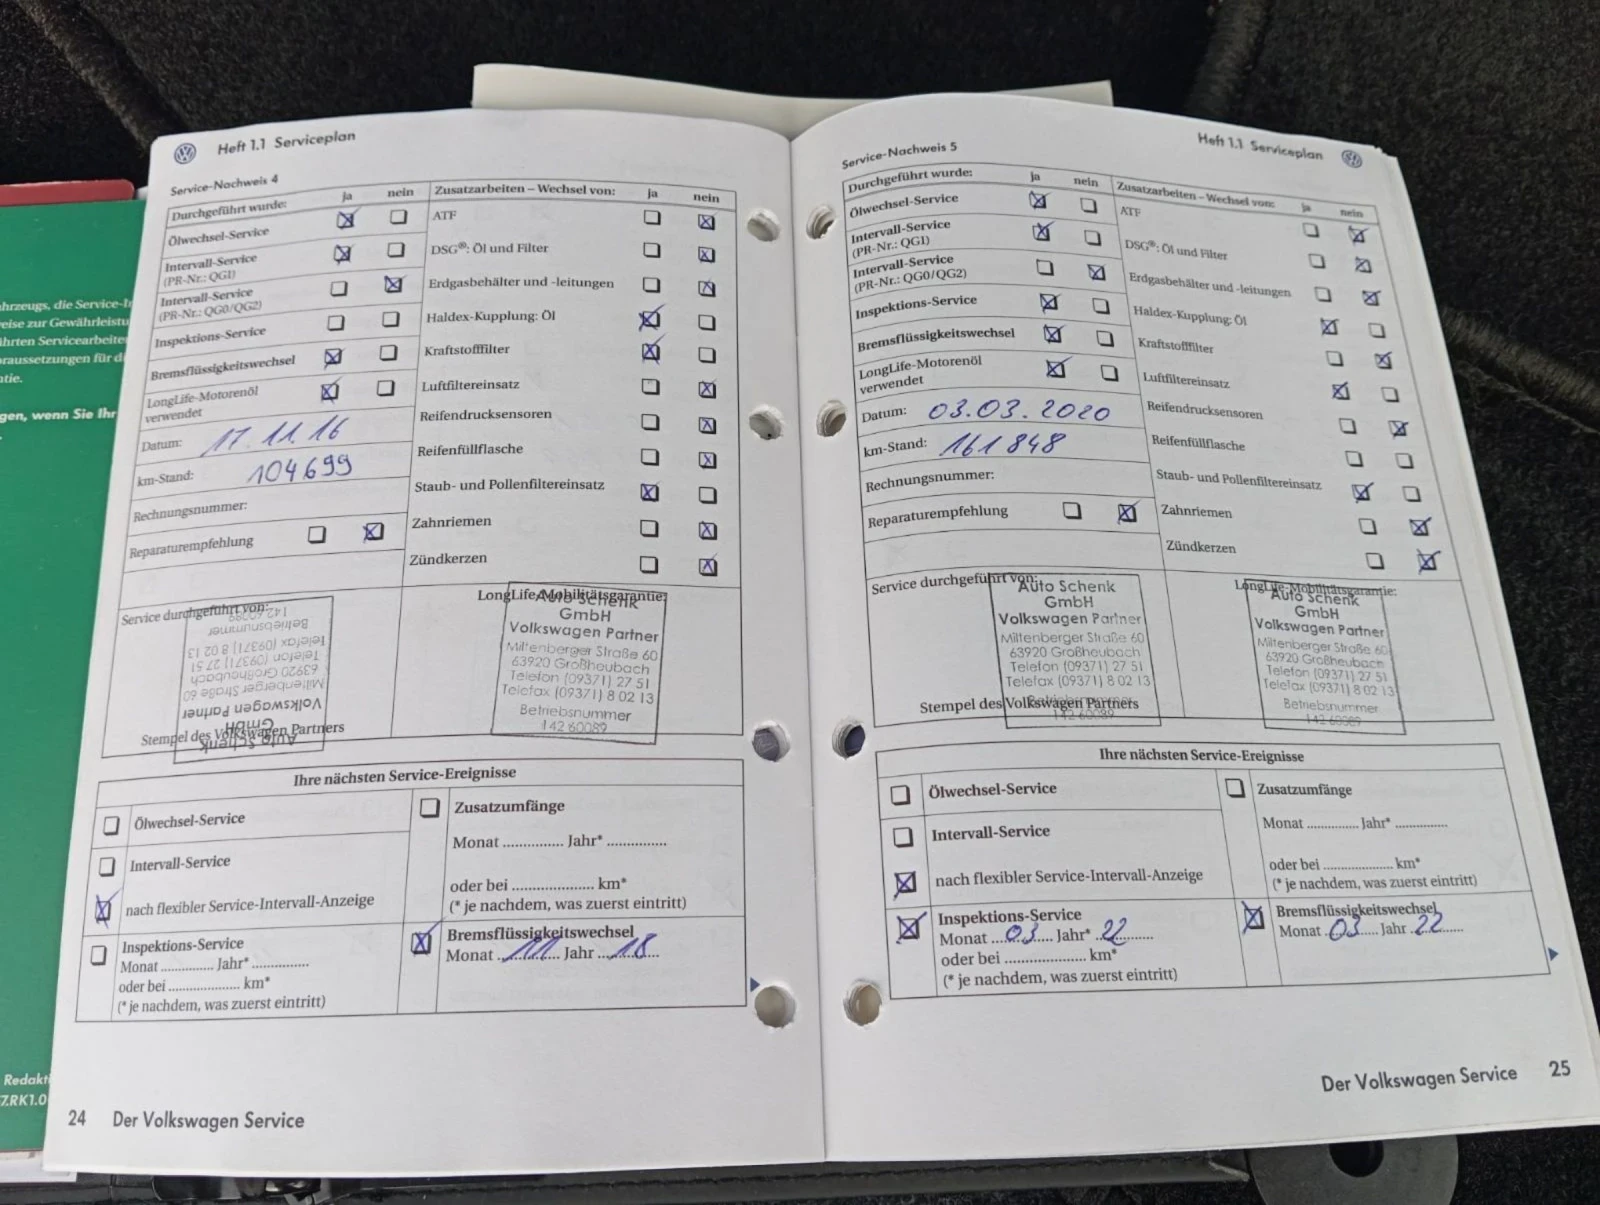 hrzeugs, die Service-I
eise zur Gewährleistu
hrten Servicearbeite
raussetzungen für di
tie.
gen, wenn Sie Ihr
Redakti
7.RK1.0
Heft 1.1 Serviceplan
Service-Nachweis 4
Durchgeführt wurde: ja nein
Ölwechsel-Service
Intervall-Service
(PR-Nr.: QG1)
Intervall-Service
(PR-Nr.: QG0/QG2)
Inspektions-Service
Bremsflüssigkeitswechsel
LongLife-Motorenöl
verwendet
Datum: 17.11.16
km-Stand: 104699
Rechnungsnummer:
Reparaturempfehlung
Zusatzarbeiten – Wechsel von: ja nein
ATF
DSG®: Öl und Filter
Erdgasbehälter und -leitungen
Haldex-Kupplung: Öl
Kraftstofffilter
Luftfiltereinsatz
Reifendrucksensoren
Reifenfüllflasche
Staub- und Pollenfiltereinsatz
Zahnriemen
Zündkerzen
Service durchgeführt von:
Auto Schenk
GmbH
Volkswagen Partner
Miltenberger Straße 60
63920 Großheubach
Telefon (09371) 27 51
Telefax (09371) 8 02 13
Betriebsnummer
142 60089
Stempel des Volkswagen Partners
LongLife-Mobilitätsgarantie:
Auto Schenk
GmbH
Volkswagen Partner
Miltenberger Straße 60
63920 Großheubach
Telefon (09371) 27 51
Telefax (09371) 8 02 13
Betriebsnummer
142 60089
Ihre nächsten Service-Ereignisse
Ölwechsel-Service
Intervall-Service
nach flexibler Service-Intervall-Anzeige
Inspektions-Service
Monat .............. Jahr* ..............
oder bei .................... km*
(* je nachdem, was zuerst eintritt)
Zusatzumfänge
Monat .............. Jahr* ..............
oder bei .................... km*
(* je nachdem, was zuerst eintritt)
Bremsflüssigkeitswechsel
Monat 11 Jahr 18
24 Der Volkswagen Service
Heft 1.1 Serviceplan
Service-Nachweis 5
Durchgeführt wurde: ja nein
Ölwechsel-Service
Intervall-Service
(PR-Nr.: QG1)
Intervall-Service
(PR-Nr.: QG0/QG2)
Inspektions-Service
Bremsflüssigkeitswechsel
LongLife-Motorenöl
verwendet
Datum: 03.03.2020
km-Stand: 161848
Rechnungsnummer:
Reparaturempfehlung
Zusatzarbeiten – Wechsel von: ja nein
ATF
DSG®: Öl und Filter
Erdgasbehälter und -leitungen
Haldex-Kupplung: Öl
Kraftstofffilter
Luftfiltereinsatz
Reifendrucksensoren
Reifenfüllflasche
Staub- und Pollenfiltereinsatz
Zahnriemen
Zündkerzen
Service durchgeführt von:
Auto Schenk
GmbH
Volkswagen Partner
Miltenberger Straße 60
63920 Großheubach
Telefon (09371) 27 51
Telefax (09371) 8 02 13
Betriebsnummer
142 60089
Stempel des Volkswagen Partners
LongLife-Mobilitätsgarantie:
Auto Schenk
GmbH
Volkswagen Partner
Miltenberger Straße 60
63920 Großheubach
Telefon (09371) 27 51
Telefax (09371) 8 02 13
Betriebsnummer
142 60089
Ihre nächsten Service-Ereignisse
Ölwechsel-Service
Intervall-Service
nach flexibler Service-Intervall-Anzeige
Inspektions-Service
Monat 03 Jahr* 22
oder bei .................... km*
(* je nachdem, was zuerst eintritt)
Zusatzumfänge
Monat .............. Jahr* ..............
oder bei .................... km*
(* je nachdem, was zuerst eintritt)
Bremsflüssigkeitswechsel
Monat 03 Jahr 22
Der Volkswagen Service 25